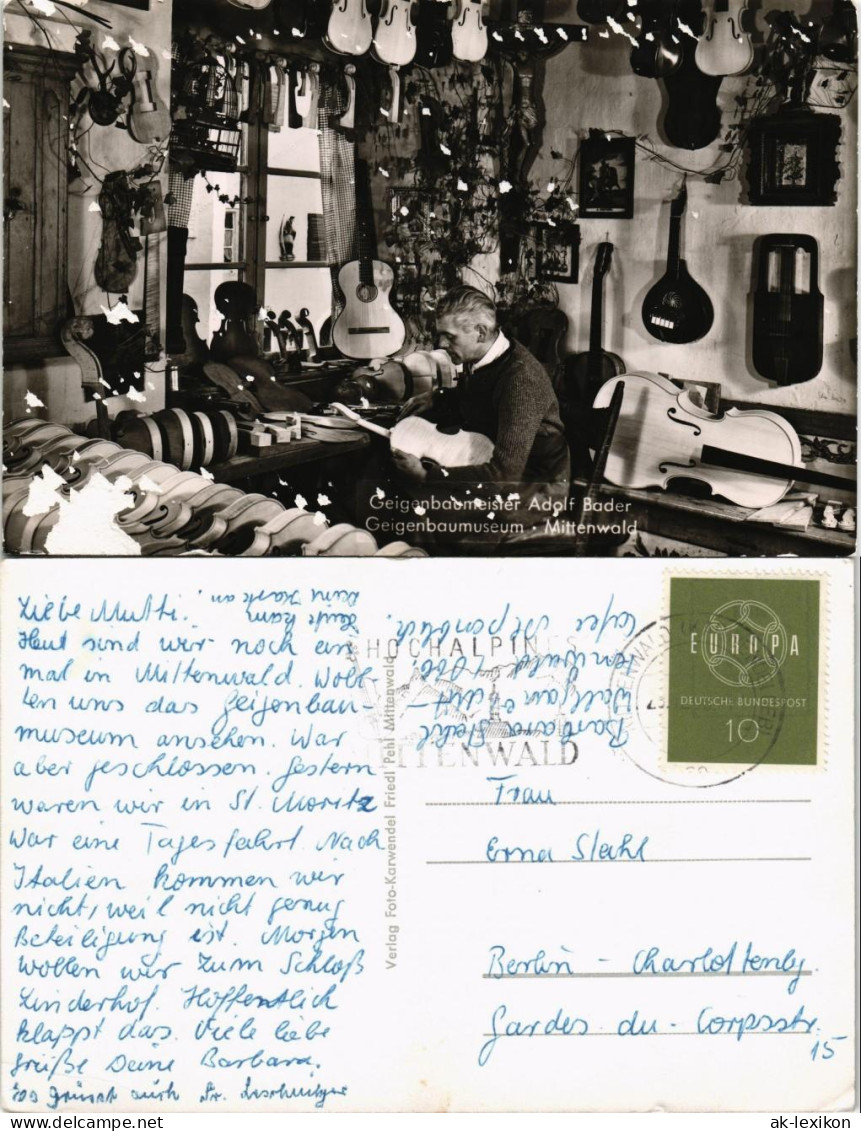 Geigenbaumeister Adolf Bader
Geigenbaumuseum • Mittenwald
Liebe Mutti.
Heut sind wir noch ein
mal in Mittenwald. Woll-
ten uns das Geigenbau-
museum ansehen. War
aber geschlossen. Gestern
waren wir in St. Moritz
War eine Tagesfahrt. Nach
Italien kommen wir
nicht, weil nicht genug
Beteiligung ist. Morgen
wollen wir zum Schloß
Linderhof. Hoffentlich
klappt das. Viele liebe
Grüße Deine Barbara.
grüsst auch Fr.
Heute kam
Deine Karte an.
Verlag Foto-Karwendel Friedl Pehl Mittenwald
HOCHALPINES
MITTENWALD
Barbara Stahl
MITTENWALD
EUROPA
DEUTSCHE BUNDESPOST
10
Frau
Erna Stahl
Berlin - Charlottenbg.
Gardes-du-Corpsstr.
15
ak-lexikon